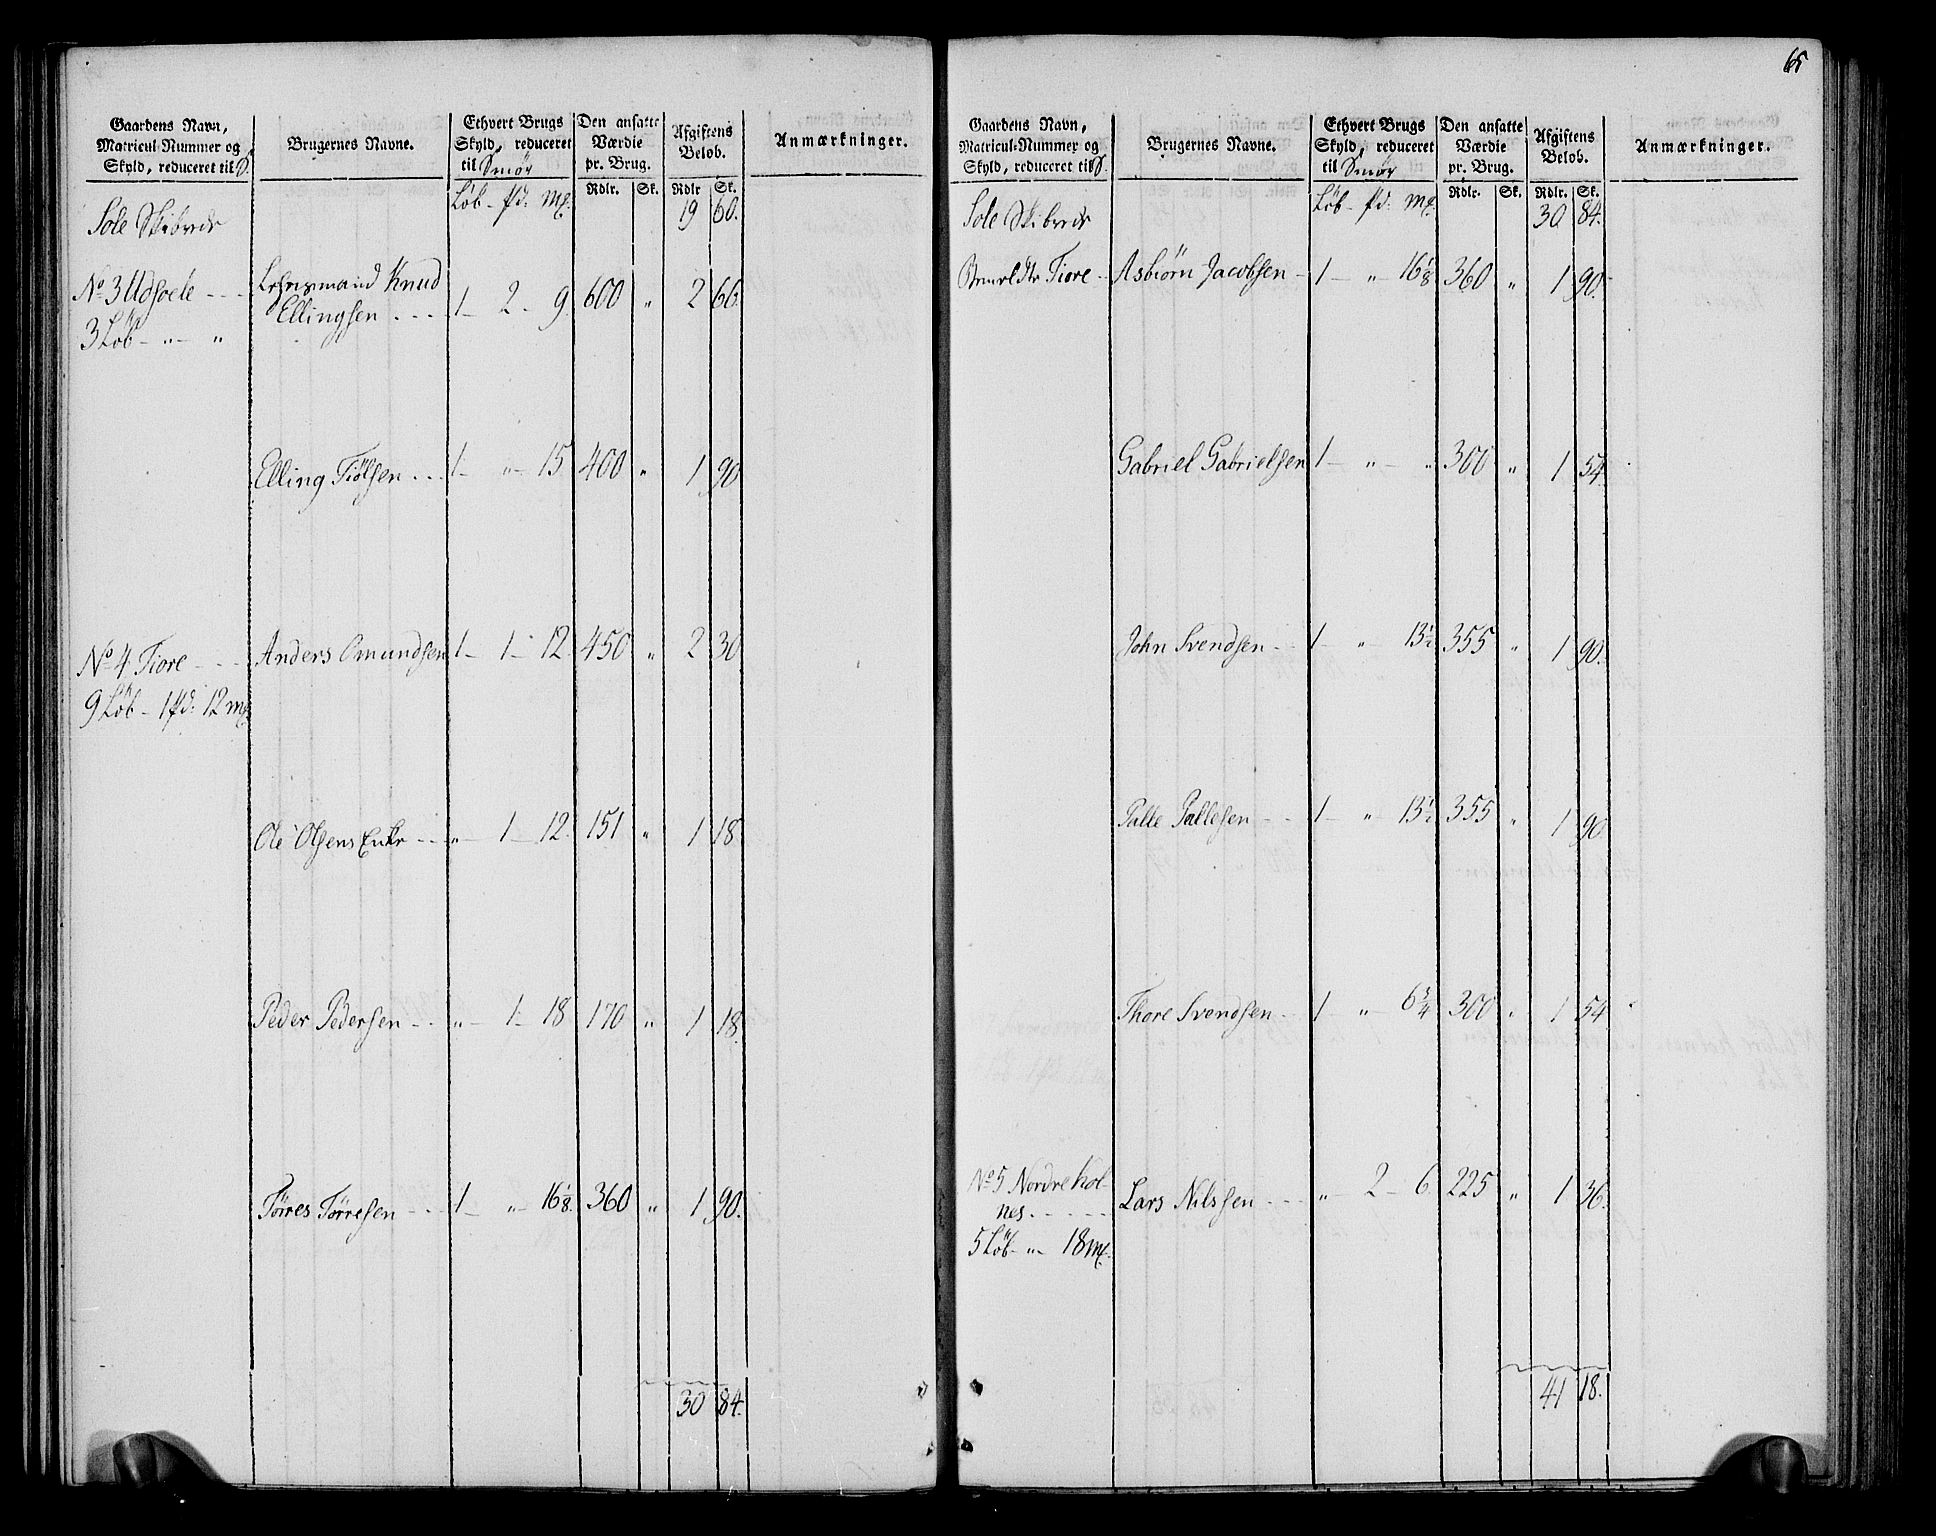 65
Gaardens Navn, Matricul-Nummer og Skyld, reduceret til
Brugernes Navne.
Ethvert Brugs Skyld, reduceret til Smör
Den ansatte Værdie pr. Brug.
Afgiftens Beløb.
Anmærkninger.
Rdlr. Sk. Rdlr Sk.
Sole Skibrede Löb - pd: m. 19 60.
No 3 Udsoele Lehnsmand Knud
Ellingsen 1 - 2 - 9 600 " 2 66.
3 Löb - " - "
Elling Tiölsen 1 - " - 15 400 " 1 90
No 4 Tiore Anders Omundsen 1 - 1 - 12 450 " 2 30
9 Löb - 1 pd: 12 m
Ole Olsens Enke " - 1 - 12. 151 " 1 18
Peder Pedersen " - 1 - 18 170 " 1 18.
Tørres Tørresen 1 - " - 16 1/8. 360 " 1 90.
30 84.
Gaardens Navn, Matricul-Nummer og Skyld, reduceret til
Brugernes Navne.
Ethvert Brugs Skyld, reduceret til Smör
Den ansatte Værdie pr. Brug.
Afgiftens Beløb.
Anmærkninger.
Rdlr. Sk. Rdlr. Sk.
Sole Skibrede Löb - pd: m. 30 84.
Tiore Asbiörn Jacobsen 1 - " 16 1/8 360 " 1 90.
Gabriel Gabrielsen 1 - " - " 300 " 1 54.
John Svendsen 1 - " - 13 1/2 355 " 1 90.
Palle Pallesen 1 - " - 13 1/2 355 " 1 90
Thore Svendsen 1 - " - 6 3/4 300 " 1 54
No 5 Nordre Hol-
nes. Lars Nilssen " - 2 - 6. 225 " 1 36.
5 Löb - " - 18 m.
41 18.